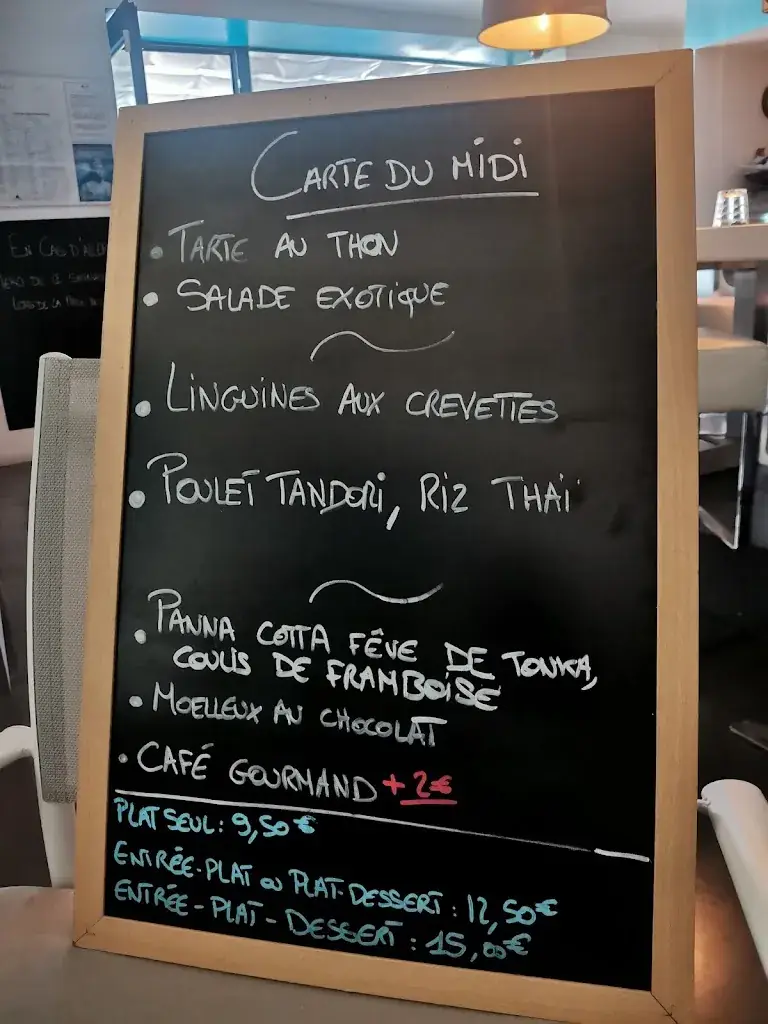 CARTE DU MIDI
• TARTE AU THON
• SALADE EXOTIQUE
• LINGUINES AUX CREVETTES
• POULET TANDORI, RIZ THAÏ
• PANNA COTTA FÊVE DE TONKA,
COULIS DE FRAMBOISE
• MOELLEUX AU CHOCOLAT
• CAFÉ GOURMAND + 2€
PLAT SEUL : 9,50€
ENTRÉE-PLAT ou PLAT-DESSERT : 12,50€
ENTRÉE-PLAT-DESSERT : 15,00€
EN CAS D'